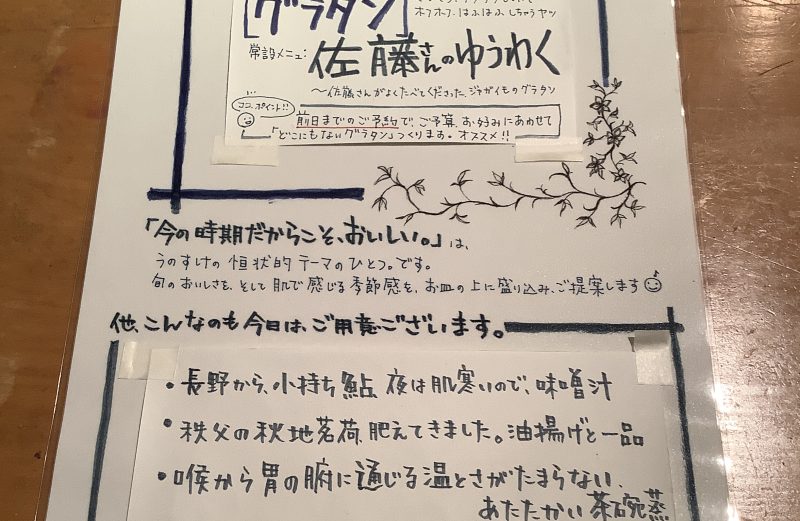 [グラタン]
ホフホフ、はふはふしちゃうヤツ
常設メニュー:佐藤さんのゆうわく
〜佐藤さんがよくたべてくださった、ジャガイものグラタン
ココ、ポイント!!
前日までのご予約で、ご予算、お好みにあわせて
「どこにもないグラタン」つくります。オススメ!!
「今の時期だからこそ、おいしい。」は、
うのすけの恒状的テーマのひとつ。です。
旬のおいしさを、そして肌で感じる季節感を、お皿の上に盛り込み、ご提案します
他、こんなのも今日は、ご用意ございます。
・長野から、小持ち鮎、夜は肌寒いので、味噌汁
・秩父の秋地茗荷、肥えてきました。油揚げと一品
・喉から胃の腑に通じる温とさがたまらない、
あたたかい茶碗蒸